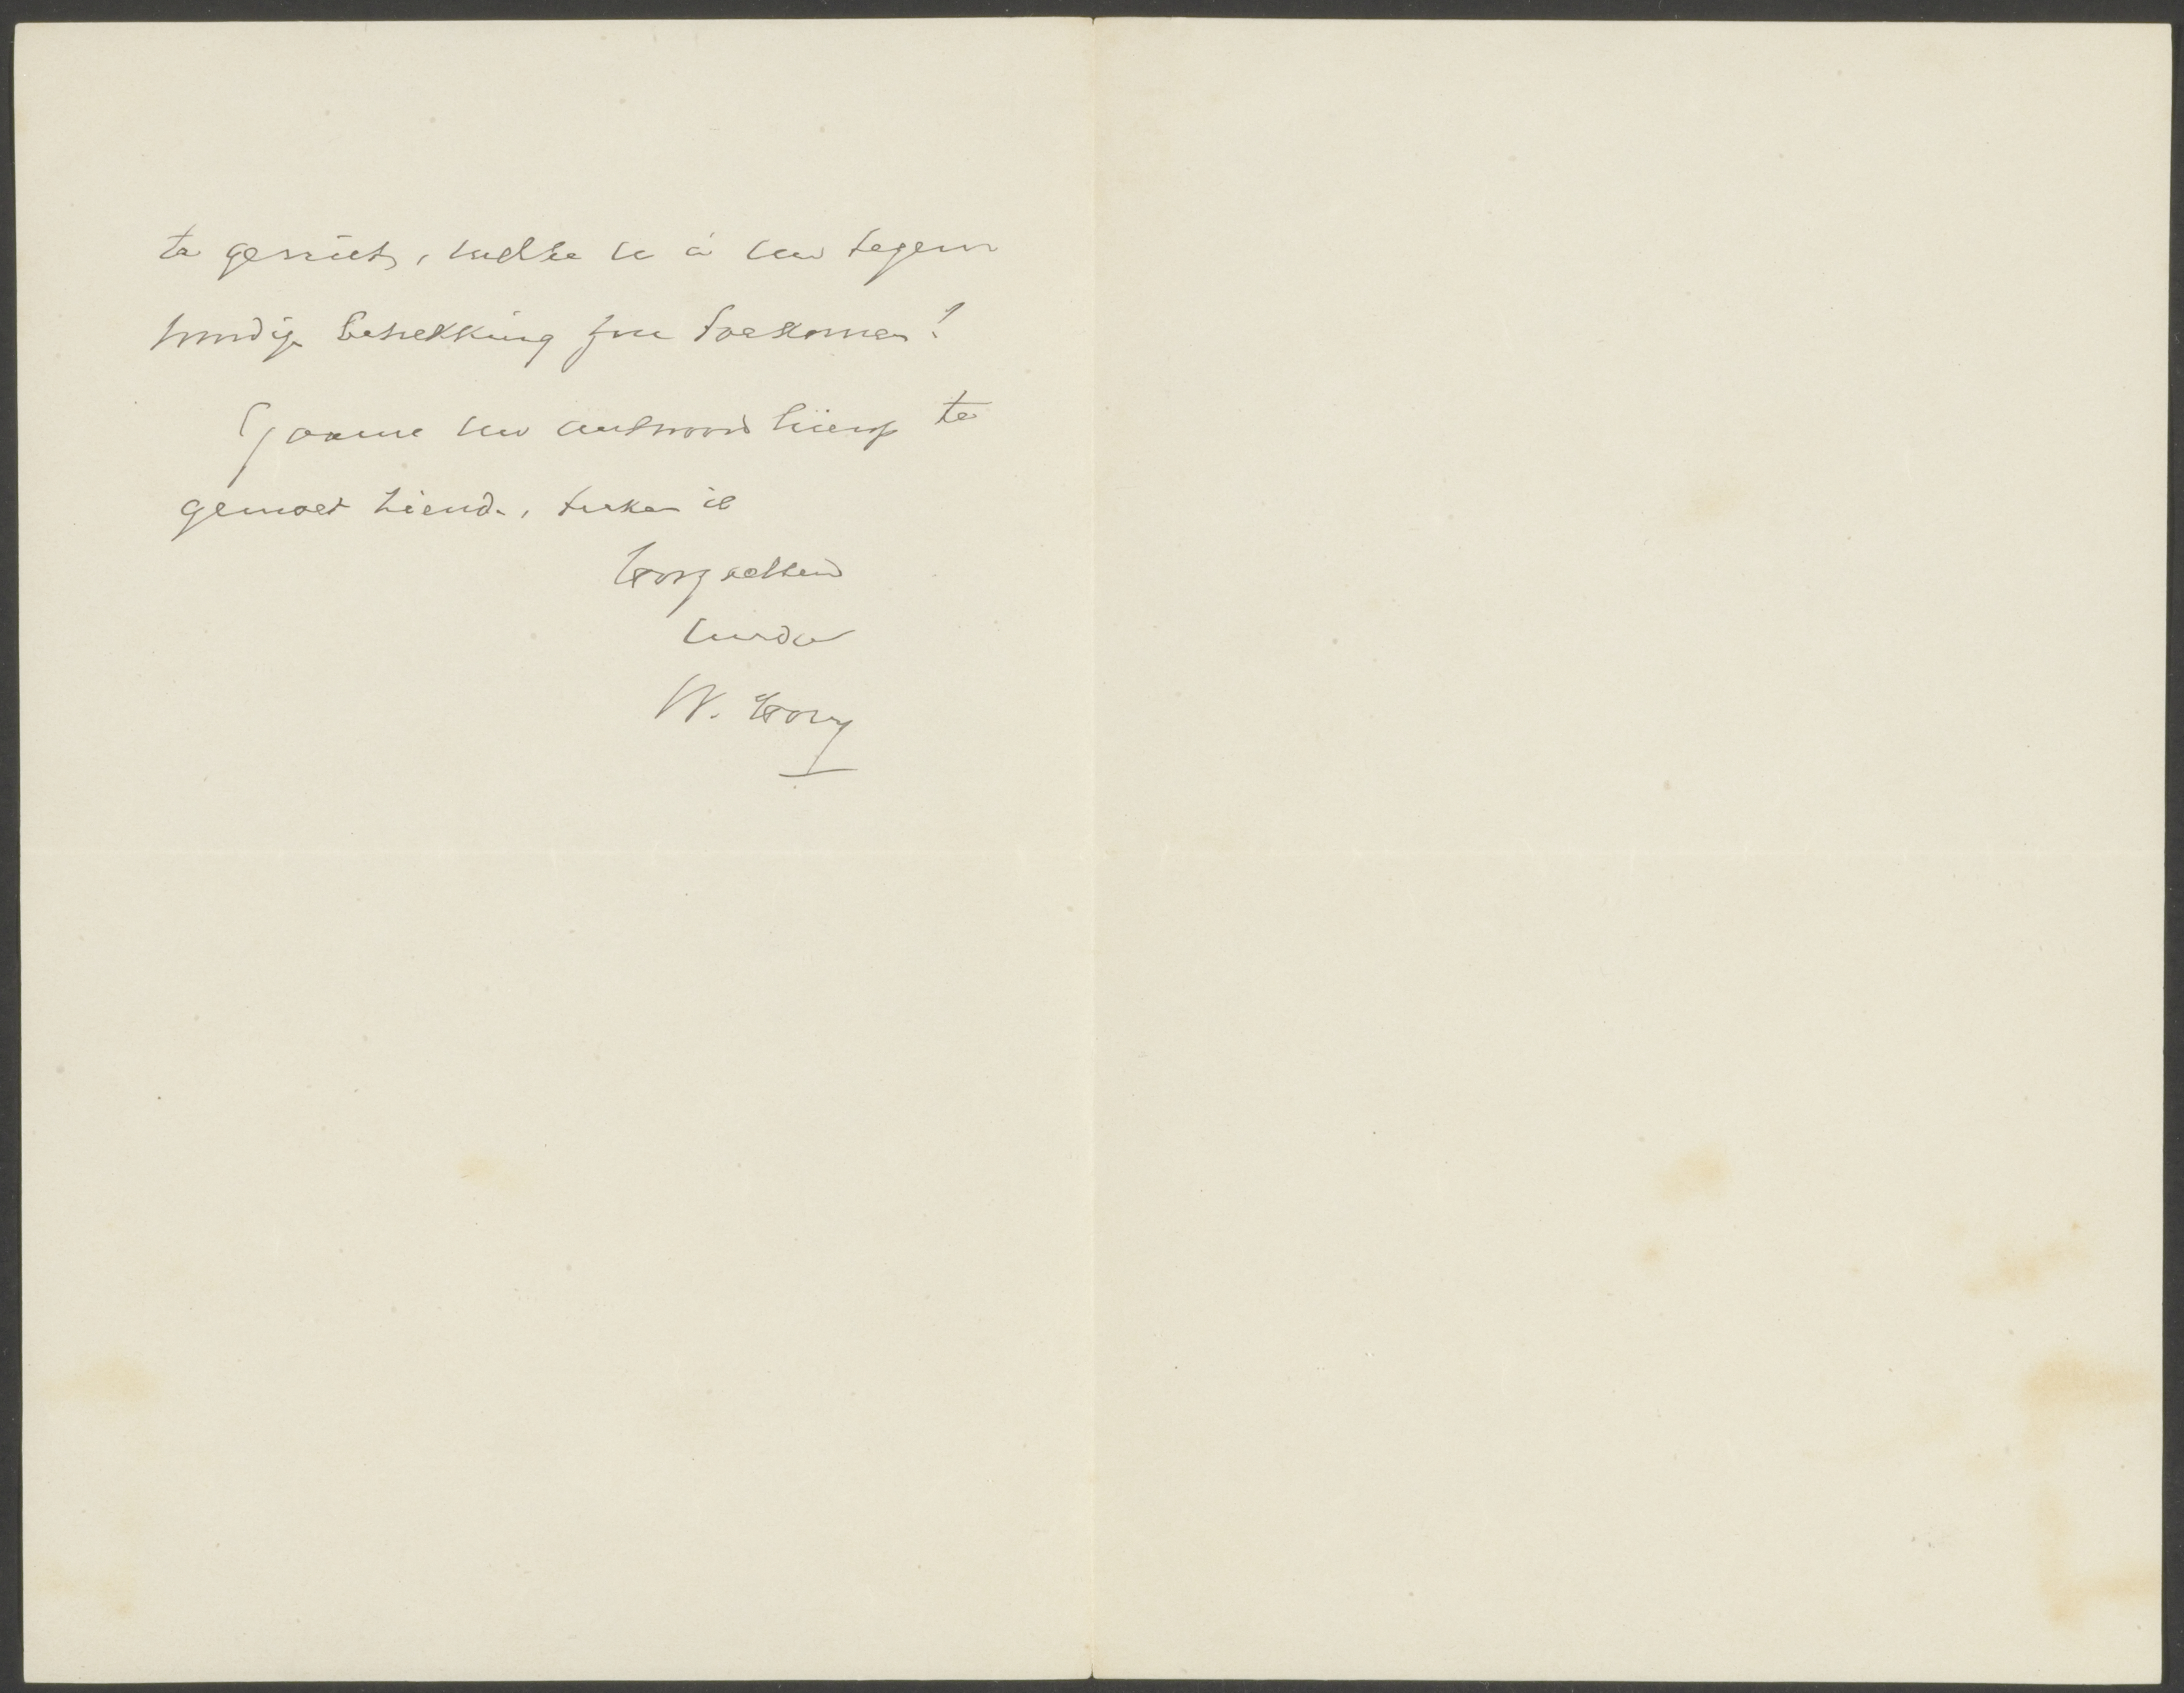 te geniet, welke u in uw tegen
woordige betrekking zou toekomen?
Gaarne uw antwoord hierop te
gemoet ziende, teken ik
Hoogachtend
Uwdw
W.